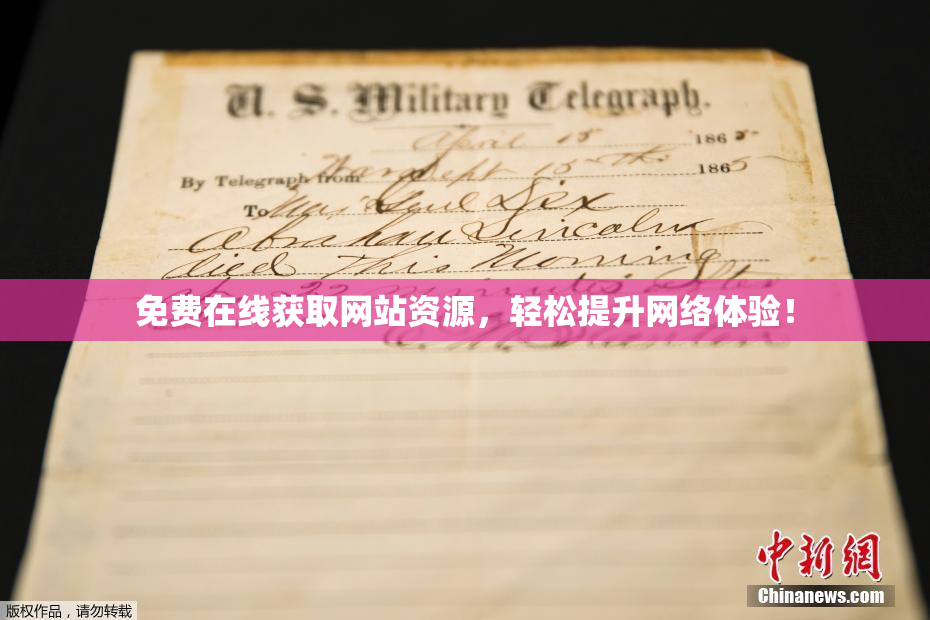 U. S. Military Telegraph.
April 15 1865
By Telegraph from War Dept 15th 1865
To Maj Genl Dix
Abraham Lincoln
died This Morning
22 minutes after
免费在线获取网站资源，轻松提升网络体验！
E. M. Stanton
中新网
Chinanews.com
版权作品，请勿转载